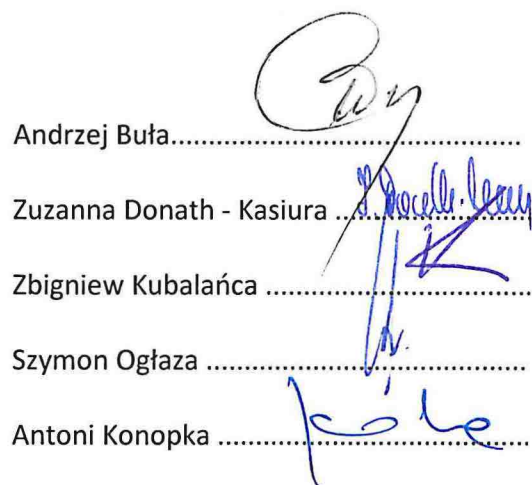 Andrzej Buła........................................
Zuzanna Donath - Kasiura ........................
Zbigniew Kubalańca ................................
Szymon Ogłaza .......................................
Antoni Konopka .....................................